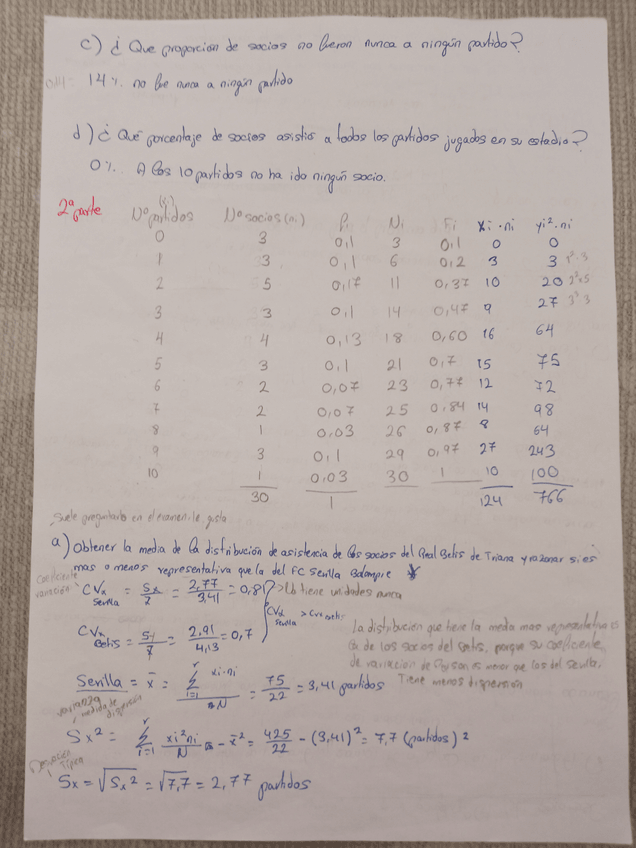 c) ¿ Que proporcion de socios no fueron nunca a ningún partido?
0,14 = 14% no fue nunca a ningún partido
d) ¿ Qué porcentaje de socios asistio a todos los partidos jugados en su estadio?
0%. A los 10 partidos no ha ido ningún socio.
2ª parte
Nº partidos (xi) Nº socios (ni) fi Ni Fi xi · ni yi² · ni
0 3 0,1 3 0,1 0 0
1 3 0,1 6 0,2 3 3 1²·3
2 5 0,17 11 0,37 10 20 2²·5
3 3 0,1 14 0,47 9 27 3²·3
4 4 0,13 18 0,60 16 64
5 3 0,1 21 0,7 15 75
6 2 0,07 23 0,77 12 72
7 2 0,07 25 0,84 14 98
8 1 0,03 26 0,87 8 64
9 3 0,1 29 0,97 27 243
10 1 0,03 30 1 10 100
30 1 124 766
suele preguntarlo en el examen le gusta
a) Obtener la media de la distribución de asistencia de los socios del Real Betis de Triana y razonar si es
mas o menos representativa que la del FC Sevilla Balompie
Coeficiente variación
CVx Sevilla = Sx/x̄ = 2,77/3,41 = 0,81 > No tiene unidades nunca
CVx Sevilla > CVx Betis
CVx Betis = Sy/ȳ = 2,91/4,13 = 0,7
La distribución que tiene la media mas representativa es
la de los socios del Betis, porque su coeficiente
de variacion de Pearson es menor que los del Sevilla.
Tiene menos dispersión
Sevilla = x̄ = Σ i=1 r xi·ni / N = 75/22 = 3,41 partidos
varianza, medida de dispersión
Sx² = Σ i=1 r xi² ni / N - x̄² = 425/22 - (3,41)² = 7,7 (partidos)²
Desviación típica
Sx = √Sx² = √7,7 = 2,77 partidos